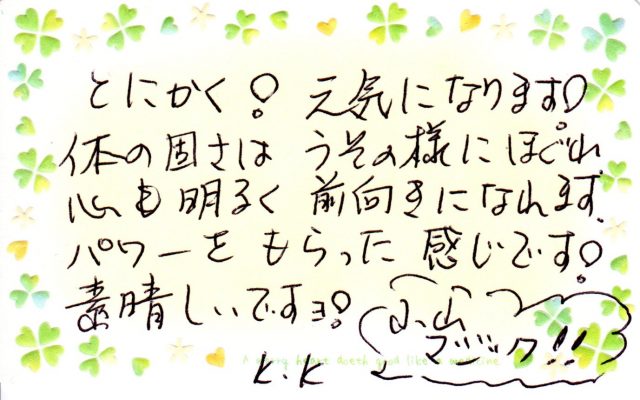 とにかく! 元気になります!
体の固さは うその様にほぐれ
心も明るく 前向きになれます。
パワーを もらった 感じです!
素晴しいですヨ!
小山
マジック!!
A merry heart doeth good like a medicine
K.K